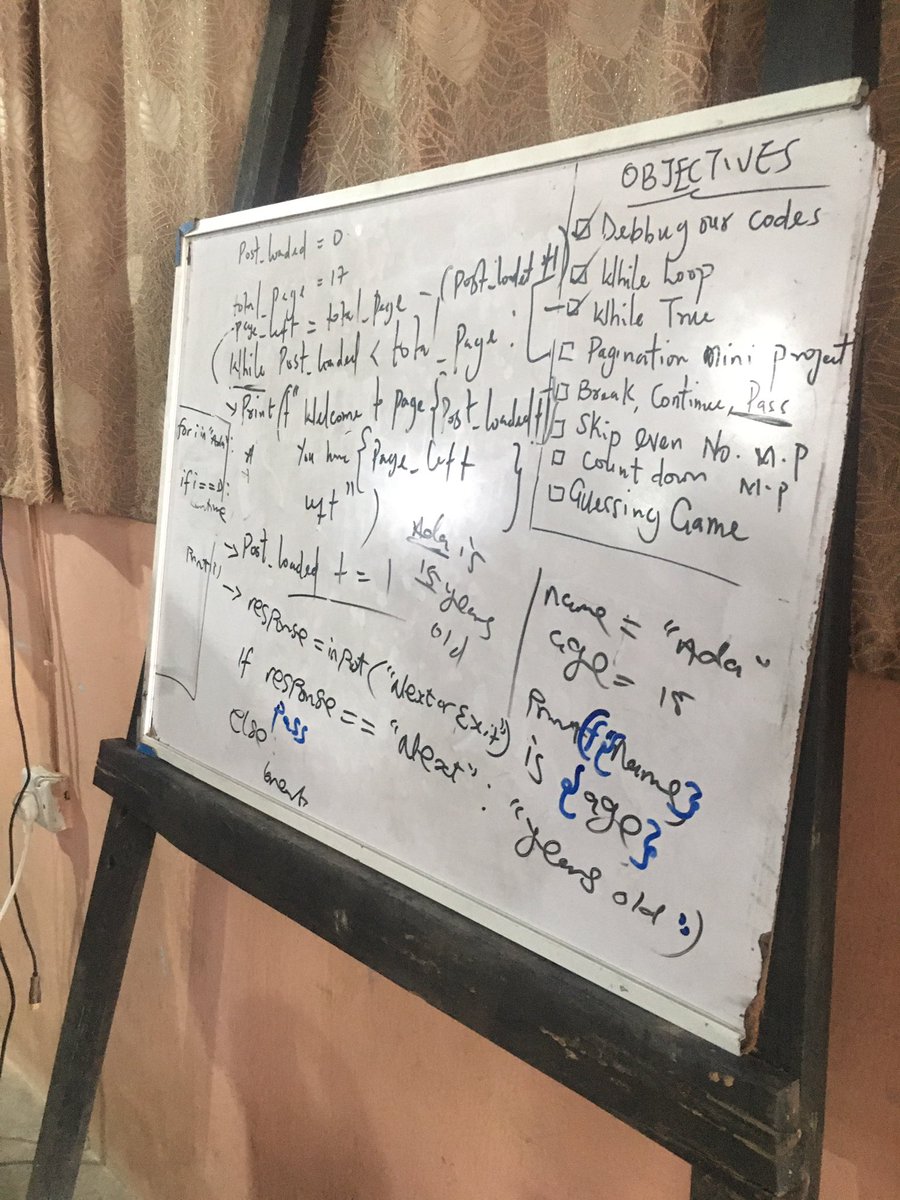 Post_loaded = 0
total_page = 17
page_left = total_page - (Post_loaded +1)
(While Post_loaded < total_page:
→ Print(f"Welcome to page {Post_loaded+1}
You have {Page_left}
left")
→ Post_loaded += 1
→ response = input("Next or Exit")
If response == "Next":
Pass
else:
break
for i in "Ada":
if i == "D":
continue
Print(i)
Ada is
18 years
old
OBJECTIVES
☑ Debbug our codes
☑ While Loop
☑ While True
☐ Pagination mini project
☐ Break, Continue, Pass
☐ Skip even No. M.P
☐ Count down M.P
☐ Guessing Game
name = "Ada"
age = 18
Print(f"{Name}
is {age}
"years old")